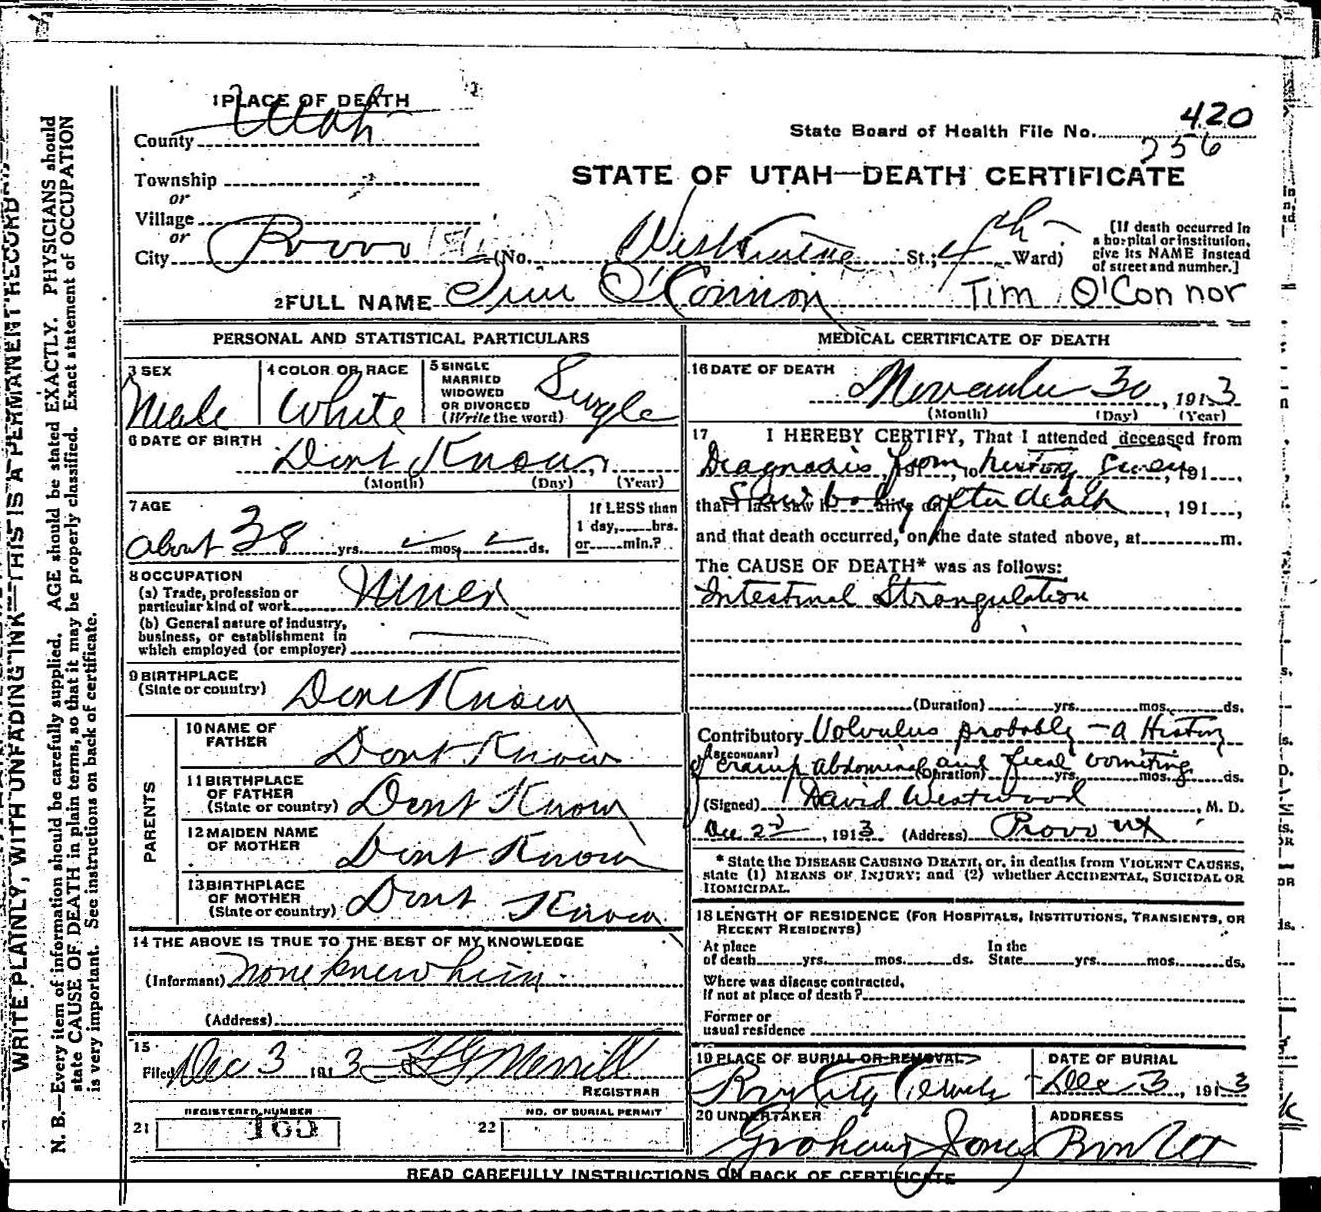 1 PLACE OF DEATH
County Utah
State Board of Health File No. 420
256
Township
or
Village
or
City Provo (No. St.; 4th Ward)
STATE OF UTAH—DEATH CERTIFICATE
[If death occurred in a hospital or institution, give its NAME instead of street and number.]
2 FULL NAME Tim O'Connor Tim O'Connor
PERSONAL AND STATISTICAL PARTICULARS
3 SEX Male
4 COLOR OR RACE White
5 SINGLE MARRIED WIDOWED OR DIVORCED (Write the word) Single
6 DATE OF BIRTH Dont Know
(Month) (Day) (Year)
7 AGE about 38 yrs. mos. ds.
If LESS than 1 day, hrs. or min.?
8 OCCUPATION
(a) Trade, profession or particular kind of work Miner
(b) General nature of industry, business, or establishment in which employed (or employer)
9 BIRTHPLACE (State or country) Dont Know
PARENTS
10 NAME OF FATHER Dont Know
11 BIRTHPLACE OF FATHER (State or country) Dont Know
12 MAIDEN NAME OF MOTHER Dont Know
13 BIRTHPLACE OF MOTHER (State or country) Dont Know
14 THE ABOVE IS TRUE TO THE BEST OF MY KNOWLEDGE
(Informant) none knew him
(Address)
15
Filed Dec 3 1913 Merrill
REGISTRAR
REGISTERED NUMBER
21 165
NO. OF BURIAL PERMIT
22
MEDICAL CERTIFICATE OF DEATH
16 DATE OF DEATH
November 30, 1913
(Month) (Day) (Year)
17 I HEREBY CERTIFY, That I attended deceased from
Diagnosis from history given, 191
that I last saw h alive on Saw body after death, 191,
and that death occurred, on the date stated above, at m.
The CAUSE OF DEATH* was as follows:
Intestinal Strangulation
(Duration) yrs. mos. ds.
Contributory Volvulus probably - a History
(SECONDARY) of cramp abdominal and fecal vomiting
(Duration) yrs. mos. ds.
(Signed) David Westwood, M. D.
Dec 2, 1913 (Address) Provo Ut
* State the DISEASE CAUSING DEATH, or, in deaths from VIOLENT CAUSES, state (1) MEANS OF INJURY; and (2) whether ACCIDENTAL, SUICIDAL OR HOMICIDAL.
18 LENGTH OF RESIDENCE (FOR HOSPITALS, INSTITUTIONS, TRANSIENTS, OR RECENT RESIDENTS)
At place of death yrs. mos. ds. In the State yrs. mos. ds.
Where was disease contracted, if not at place of death?
Former or usual residence
19 PLACE OF BURIAL OR REMOVAL
DATE OF BURIAL
Provo City Dec 3, 1913
20 UNDERTAKER
ADDRESS
Jones Provo Ut
READ CAREFULLY INSTRUCTIONS ON BACK OF CERTIFICATE
WRITE PLAINLY, WITH UNFADING INK—THIS IS A PERMANENT RECORD
N. B.—Every item of information should be carefully supplied. AGE should be stated EXACTLY. PHYSICIANS should
state CAUSE OF DEATH in plain terms, so that it may be properly classified. Exact statement of OCCUPATION
is very important. See instructions on back of certificate.